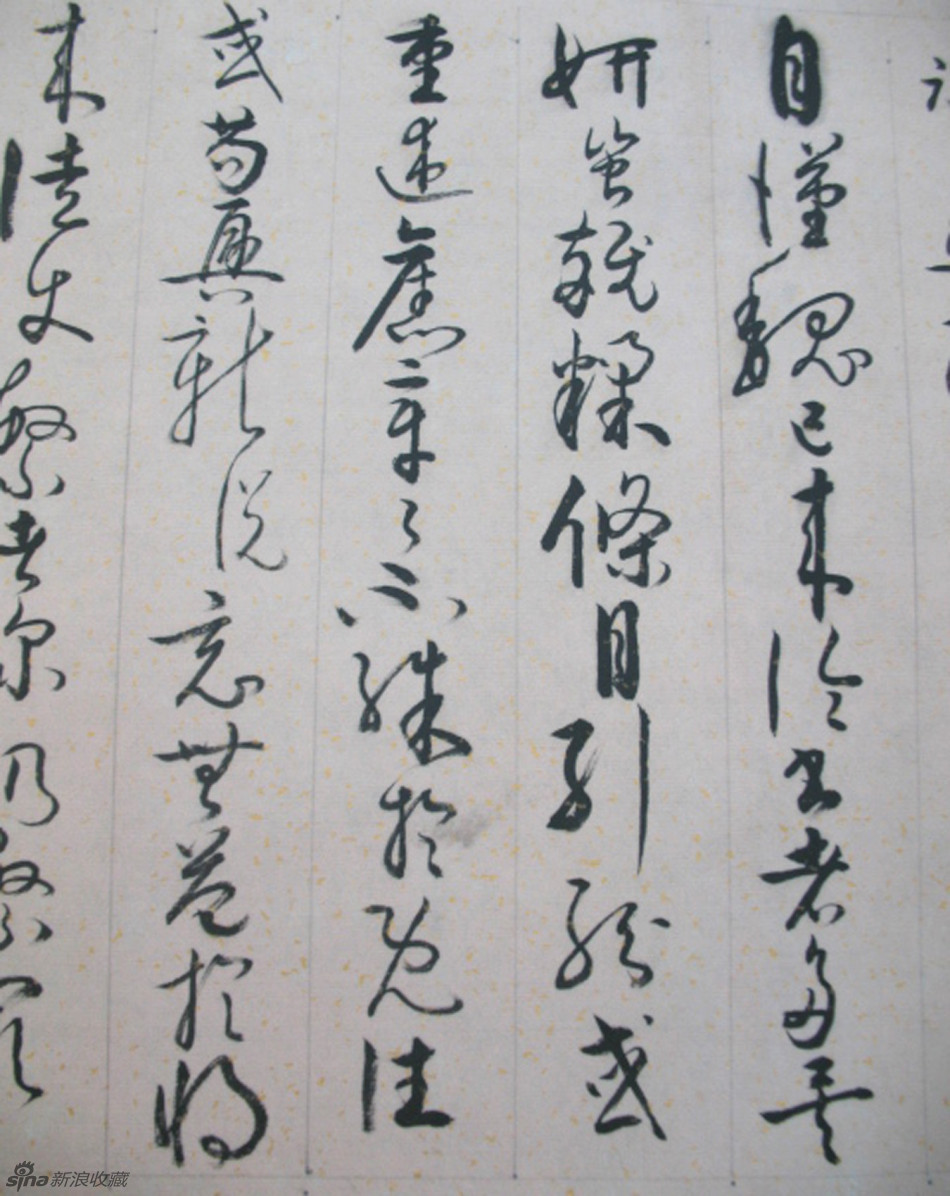 自漢魏已來論書者多矣
妍蚩雜糅條目糾紛或
重述舊章了不殊於既往
或苟興新說竟無益於將
來徒使繁者弥
sina新浪收藏